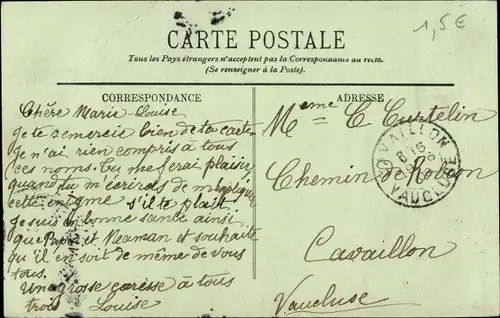 1,5€
CARTE POSTALE
Tous les Pays étrangers n'acceptent pas la Correspondance au recto.
(Se renseigner à la Poste).
CORRESPONDANCE
Chère Marie Louise
Je te remercie bien de ta carte
Je n'ai rien compris à tous
ces noms. Tu me ferai plaisir
quand tu m'ecrirds de m'expliquer
cette enigme s'il te plait
Je suis en bonne santé ainsi
que Papa et Maman et souhaite
qu'il en soit de même de vous
tous.
Une grosse caresse à tous
trois Louise
ADRESSE
Meme C Curtelin
Chemin de Robion
Cavaillon
Vaucluse
CAVAILLON
VAUCLUSE